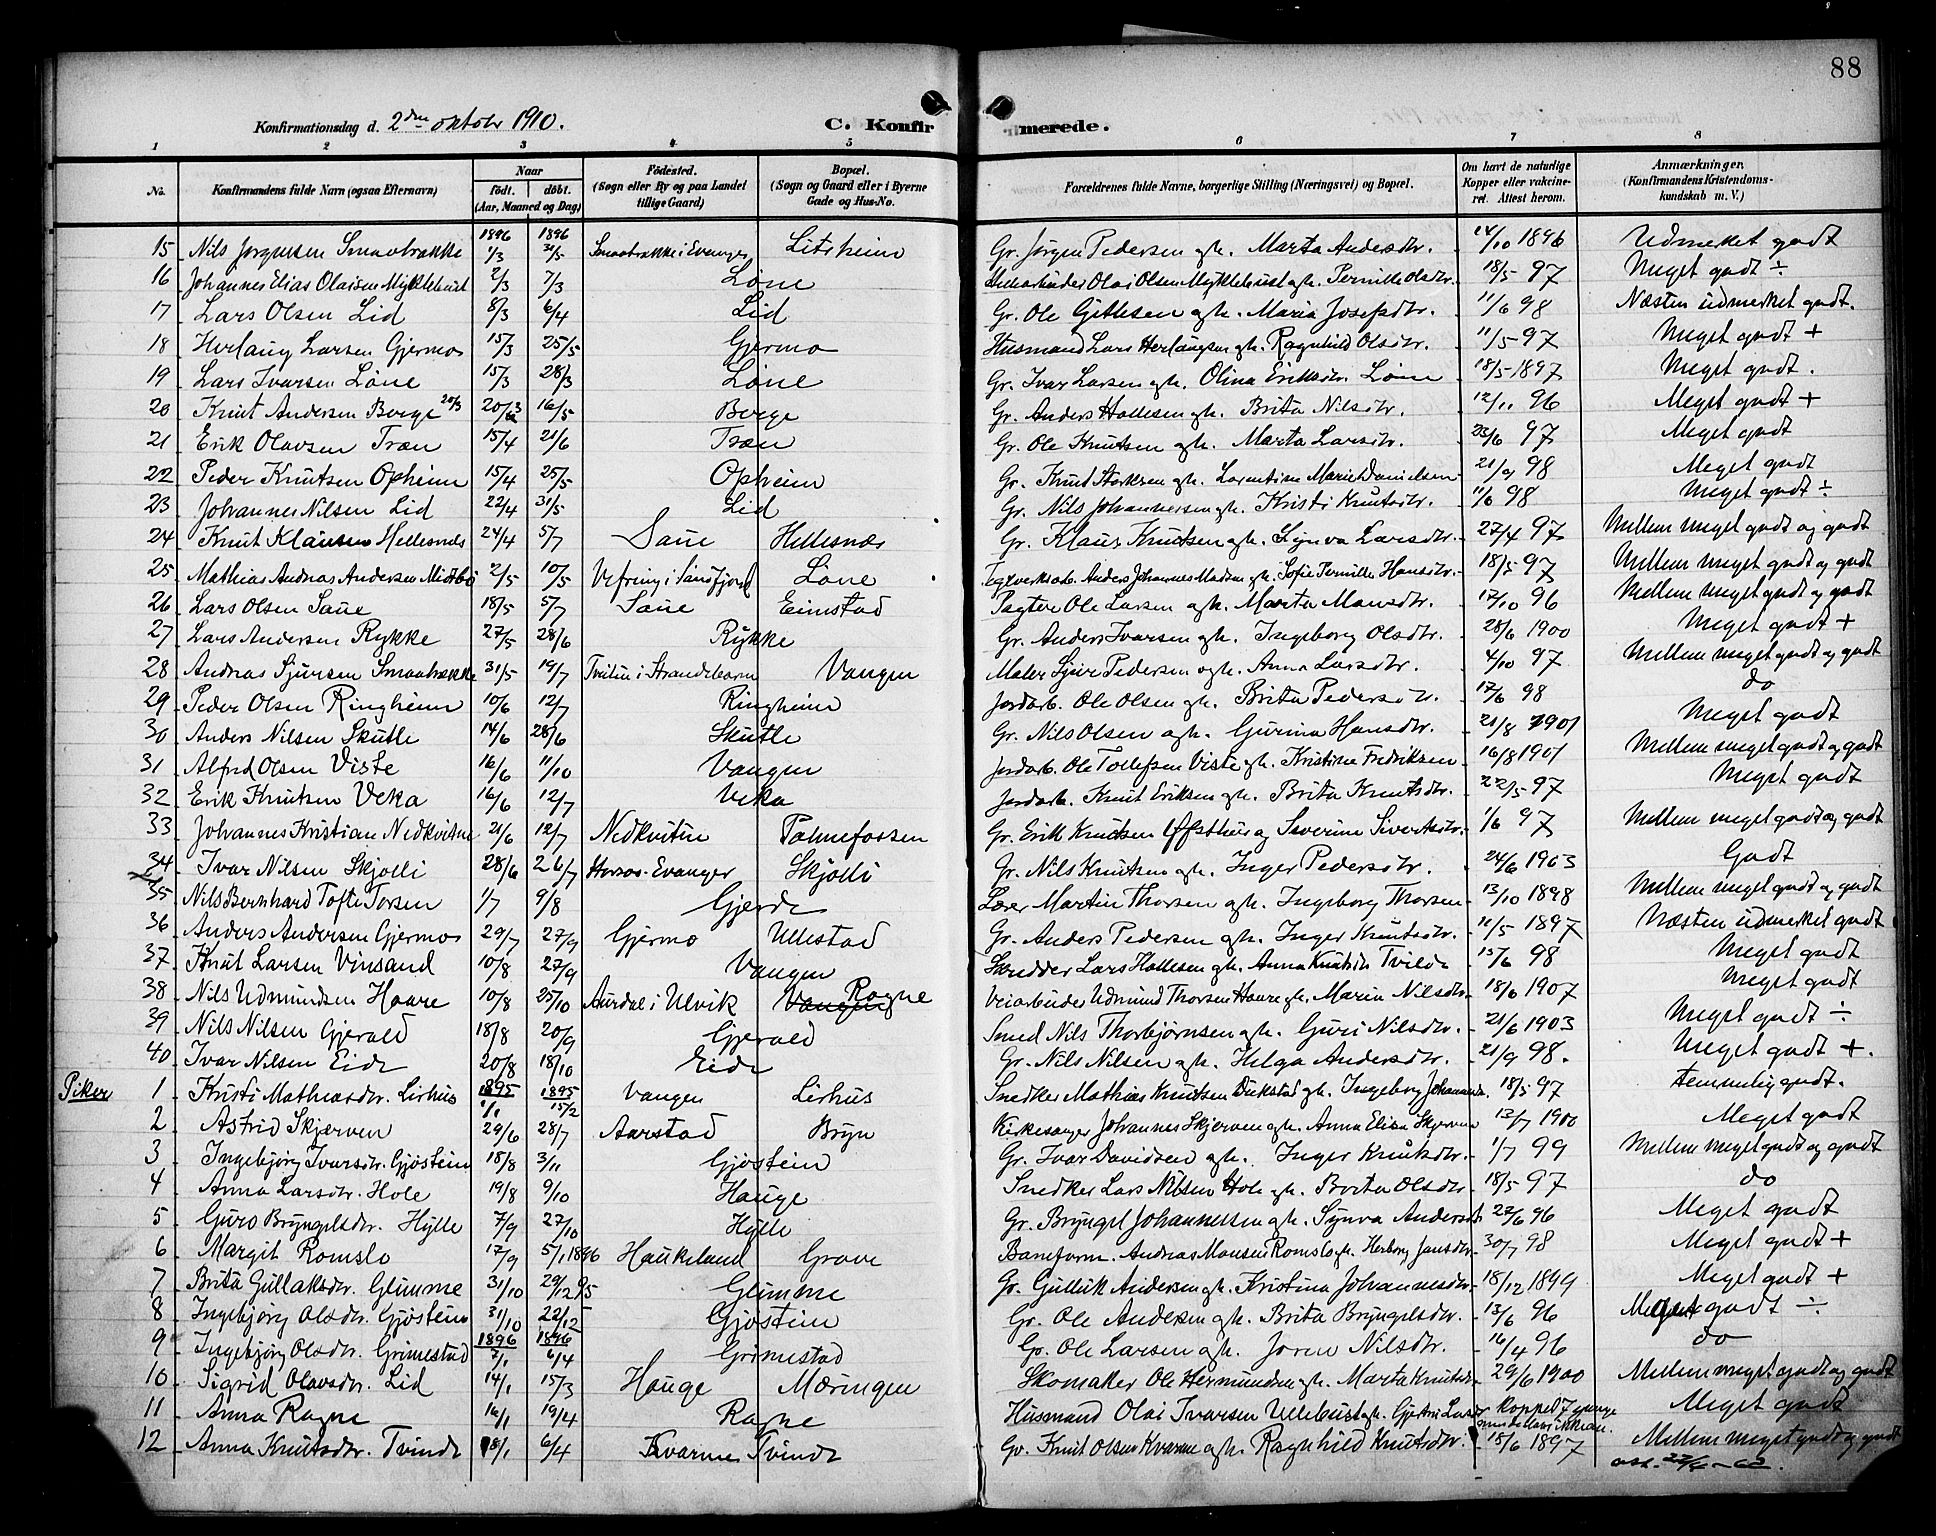 88
Konfirmationsdag d. 2den oktobr 1910.
C. Konfirmerede.
1 2 3 4 5 6 7 8
No. Konfirmandens fulde Navn (ogsaa Efternavn) Naar födt. döbt. (Aar, Maaned og Dag) Födested. (Sogn eller By og paa Landet tillige Gaard) Bopæl. (Sogn og Gaard eller i Byerne Gade og Hus-No. Forældrenes fulde Navne, borgerlige Stilling (Næringsvei) og Bopæl. Om havt de naturlige Kopper eller vakcineret. Attest herom. Anmærkninger. (Konfirmandens Kristendomskundskab m. V.)
1896 1896
15 Nils Jorgensen Smaabrække 1/3 31/5 Smaabrække i Evanger Litsheim Gr. Jørgen Pedersen gh. Marta Andersdtr. 14/10 1896 Udmerket godt
16 Johannes Elias Olaisen Myklebust 2/3 7/3 Löne Olai Olsen Myklebust gh. Pernille Olsdtr. 18/5 97 Meget godt ÷
17 Lars Olsen Lid 8/3 6/4 Lid Gr. Ole Gitlesen gh. Maria Josefsdtr. 11/6 98 Næsten udmerket godt.
18 Herlaug Larsen Gjermo 15/3 25/5 Gjermo Husmand Lars Herlaugsen gh. Ragnhild Olsdtr. 11/5 97 Meget godt +
19 Lars Ivarsen Löne 15/3 28/3 Löne Gr. Ivar Larsen gh. Olina Eriksdtr. Löne 18/5 1897 Meget godt.
20 Knut Andersen Borge 20/3 20/3 16/5 Borge Gr. Anders Hallesen gh. Brita Nilsdtr. 12/11 96 Meget godt +
21 Erik Olavsen Træn 15/4 21/6 Træn Gr. Ole Knutsen gh. Marta Larsdtr. 23/6 97 Meget godt
22 Peder Knutsen Opheim 15/4 25/5 Opheim Gr. Knud Storksen gh. Lorentine Marie Danielsen 21/9 98 Meget godt
23 Johannes Nilsen Lid 22/4 31/5 Lid Gr. Nils Johannesen gh. Kristi Knutsdtr. 11/6 98 Meget godt ÷
24 Knut Klausen Hellesnæs 24/4 5/7 Saue Hellesnæs Gr. Klaus Knutsen gh. Synva Larsdtr. 27/4 97 Mellem meget godt og godt
25 Mathias Andreas Andersen Midtbö 2/5 10/5 Vefring i Söndfjord Löne Teglverksarb. Anders Johannes Madsen gh. Sofie Pernille Hansdtr. 18/5 97 Mellem meget godt og godt
26 Lars Olsen Saue 18/5 5/7 Saue Eimstad Pagter Ole Larsen gh. Marta Monsdtr. 17/10 96 Mellem meget godt og godt
27 Lars Andersen Rykke 27/5 28/6 Rykke Gr. Anders Ivarsen gh. Ingeborg Olsdtr. 28/6 1900 Meget godt +
28 Andreas Sjursen Smaabrække 31/5 19/7 Tveiten i Strandebarm Vangen Maler Sjur Pedersen gh. Anna Larsdtr. 4/10 97 Mellem meget godt og godt
29 Peder Olsen Ringheim 10/6 12/7 Ringheim Jordarb. Ole Olsen gh. Brita Pedersdtr. 17/6 98 do
30 Anders Nilsen Skutle 14/6 28/6 Skutle Gr. Nils Olsen gh. Gurina Hansdtr. 21/8 1901 Meget godt
31 Alfred Olsen Viste 16/6 11/10 Vangen Jordarb. Ole Tollefsen Viste gh. Kristine Fredriksen 16/8 1901 Mellem meget godt og godt
32 Erik Knutsen Veka 16/6 12/7 Veka Jordarb. Knut Eriksen gh. Brita Knutsdtr. 22/5 97 Meget godt
33 Johannes Kristian Nedkvitne 21/6 12/7 Nedkvitne Palmefossen Gr. Erik Knutsen og Severine Sivertsdtr. 1/6 97 Mellem meget godt og godt
34 Ivar Nilsen Skjelli 28/6 26/7 Evanger Skjelli Gr. Nils Knutsen gh. Inger Pedersdtr. 24/6 1903 Godt
35 Nils Bernhard Tofte Torsen 1/7 9/8 Gjerde Lærer Martin Thorsen gh. Ingeborg Thorsen 13/10 1898 Mellem meget godt og godt
36 Anders Andersen Gjermo 29/7 27/9 Gjermo Ullestad Gr. Anders Pedersen gh. Inger Knutsdtr. 11/5 1897 Næsten udmerket godt
37 Knut Larsen Vinsand 10/8 27/9 Vangen Skredder Lars Hallesen gh. Anna Knutsdtr Tvilde 15/6 98 Meget godt
38 Nils Udmundsen Haare 10/8 25/10 Aurdal i Ulvik Vangen Rogne Veiarbeider Udmund Thorsen Haare gh. Maria Nilsdtr. 18/6 1907 Meget godt
39 Nils Nilsen Gjerald 18/8 20/9 Gjerald Smed Nils Thorbjørnsen gh. Guri Nilsdtr. 21/6 1903 Meget godt ÷
40 Ivar Nilsen Eide 20/8 18/10 Eide Gr. Nils Nilsen gh. Helga Andersdtr. 21/9 98. Meget godt +.
Piker 1895 1895
1 Kristi Mathiasdtr. Lirhus 1/1 15/2 Vangen Lirhus Snedker Mathias Knutsen Dukstad gh. Ingeborg Johannesdtr. 18/5 97 Temmelig godt.
2 Astrid Skjerven 29/6 28/7 Aarstad Bryn Kirkesanger Johannes Skjerven gh. Anna Elisa Skjerven 13/7 1900 Meget godt
3 Ingebjørg Ivarsdtr. Gjöstein 18/8 3/11 Gjöstein Gr. Ivar Davidsen gh. Inger Knutsdtr. 1/7 99 Mellem meget godt og godt
4 Anna Larsdtr. Hole 19/8 9/10 Hauge Snedker Lars Nilsen Hole gh. Brita Olsdtr. 18/5 97 do
5 Guro Bryngelsdtr. Hylle 7/9 27/10 Hylle Gr. Bryngel Johannessen gh. Synva Andersdtr 27/6 96 Meget godt
6 Margit Romslo 17/9 5/1 1896 Haukeland Grove Baneform. Andreas Monsen Romslo gh. Herborg Jansdtr. 30/7 98 Meget godt +
7 Brita Gullaksdtr. Glimme 31/10 29/12 95 Glimme Gr. Gulleik Andersen gh. Kristina Johannesdtr. 18/12 1899 Meget godt +
8 Ingebjörg Olsdtr. Gjöstein 31/10 22/12 Gjöstein Gr. Ole Andersen gh. Brita Bryngelsdtr. 13/6 96 Meget godt ÷
1896 1896
9 Ingebjörg Olsdtr. Grimestad 7/1 6/4 Grimestad Gr. Ole Larsen gh. Joren Nilsdtr. 16/4 96 do
10 Sigrid Olavsdtr. Lid 14/1 15/3 Hauge Mæringen Skomaker Ole Hermundsen gh. Marta Knutsdtr 29/6 1900 Mellem meget godt og godt
11 Anna Rogne 16/1 19/4 Rogne Husmand Olai Ivarsen Ullebust gh. Gjertru Larsdtr koppet 7 gange Meget godt
12 Anna Knutsdtr. Tvinde 18/1 6/4 Kvarme Tvinde Gr. Knut Olsen Kvarme gh. Ragnhild Knutsdtr. 18/6 1897 Mellem meget godt og godt